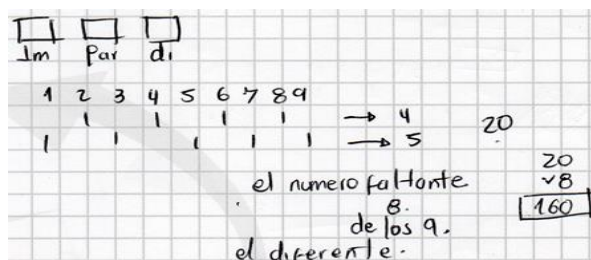 Im Par di
1 2 3 4 5 6 7 8 9
→ 4
→ 5
20
el numero faltante
8.
de los 9.
el diferente.
20
×8
160